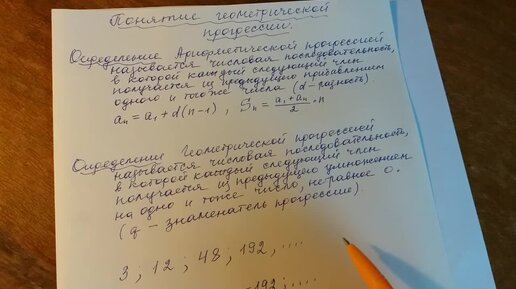 Понятие геометрической
прогрессии.
Определение Арифметической прогрессией
называется числовая последовательность,
в которой каждый следующий член
получается из предыдущего прибавлением
одного и того же числа (d - разность).
aₙ = a₁ + d(n-1) , Sₙ = (a₁ + aₙ)/2 · n
Определение Геометрической прогрессией
называется числовая последовательность,
в которой каждый следующий член
получается из предыдущего умножением
на одно и тоже число, не равное 0.
(q - знаменатель прогрессии).
3 ; 12 ; 48 ; 192 , ....
-192 ; ....